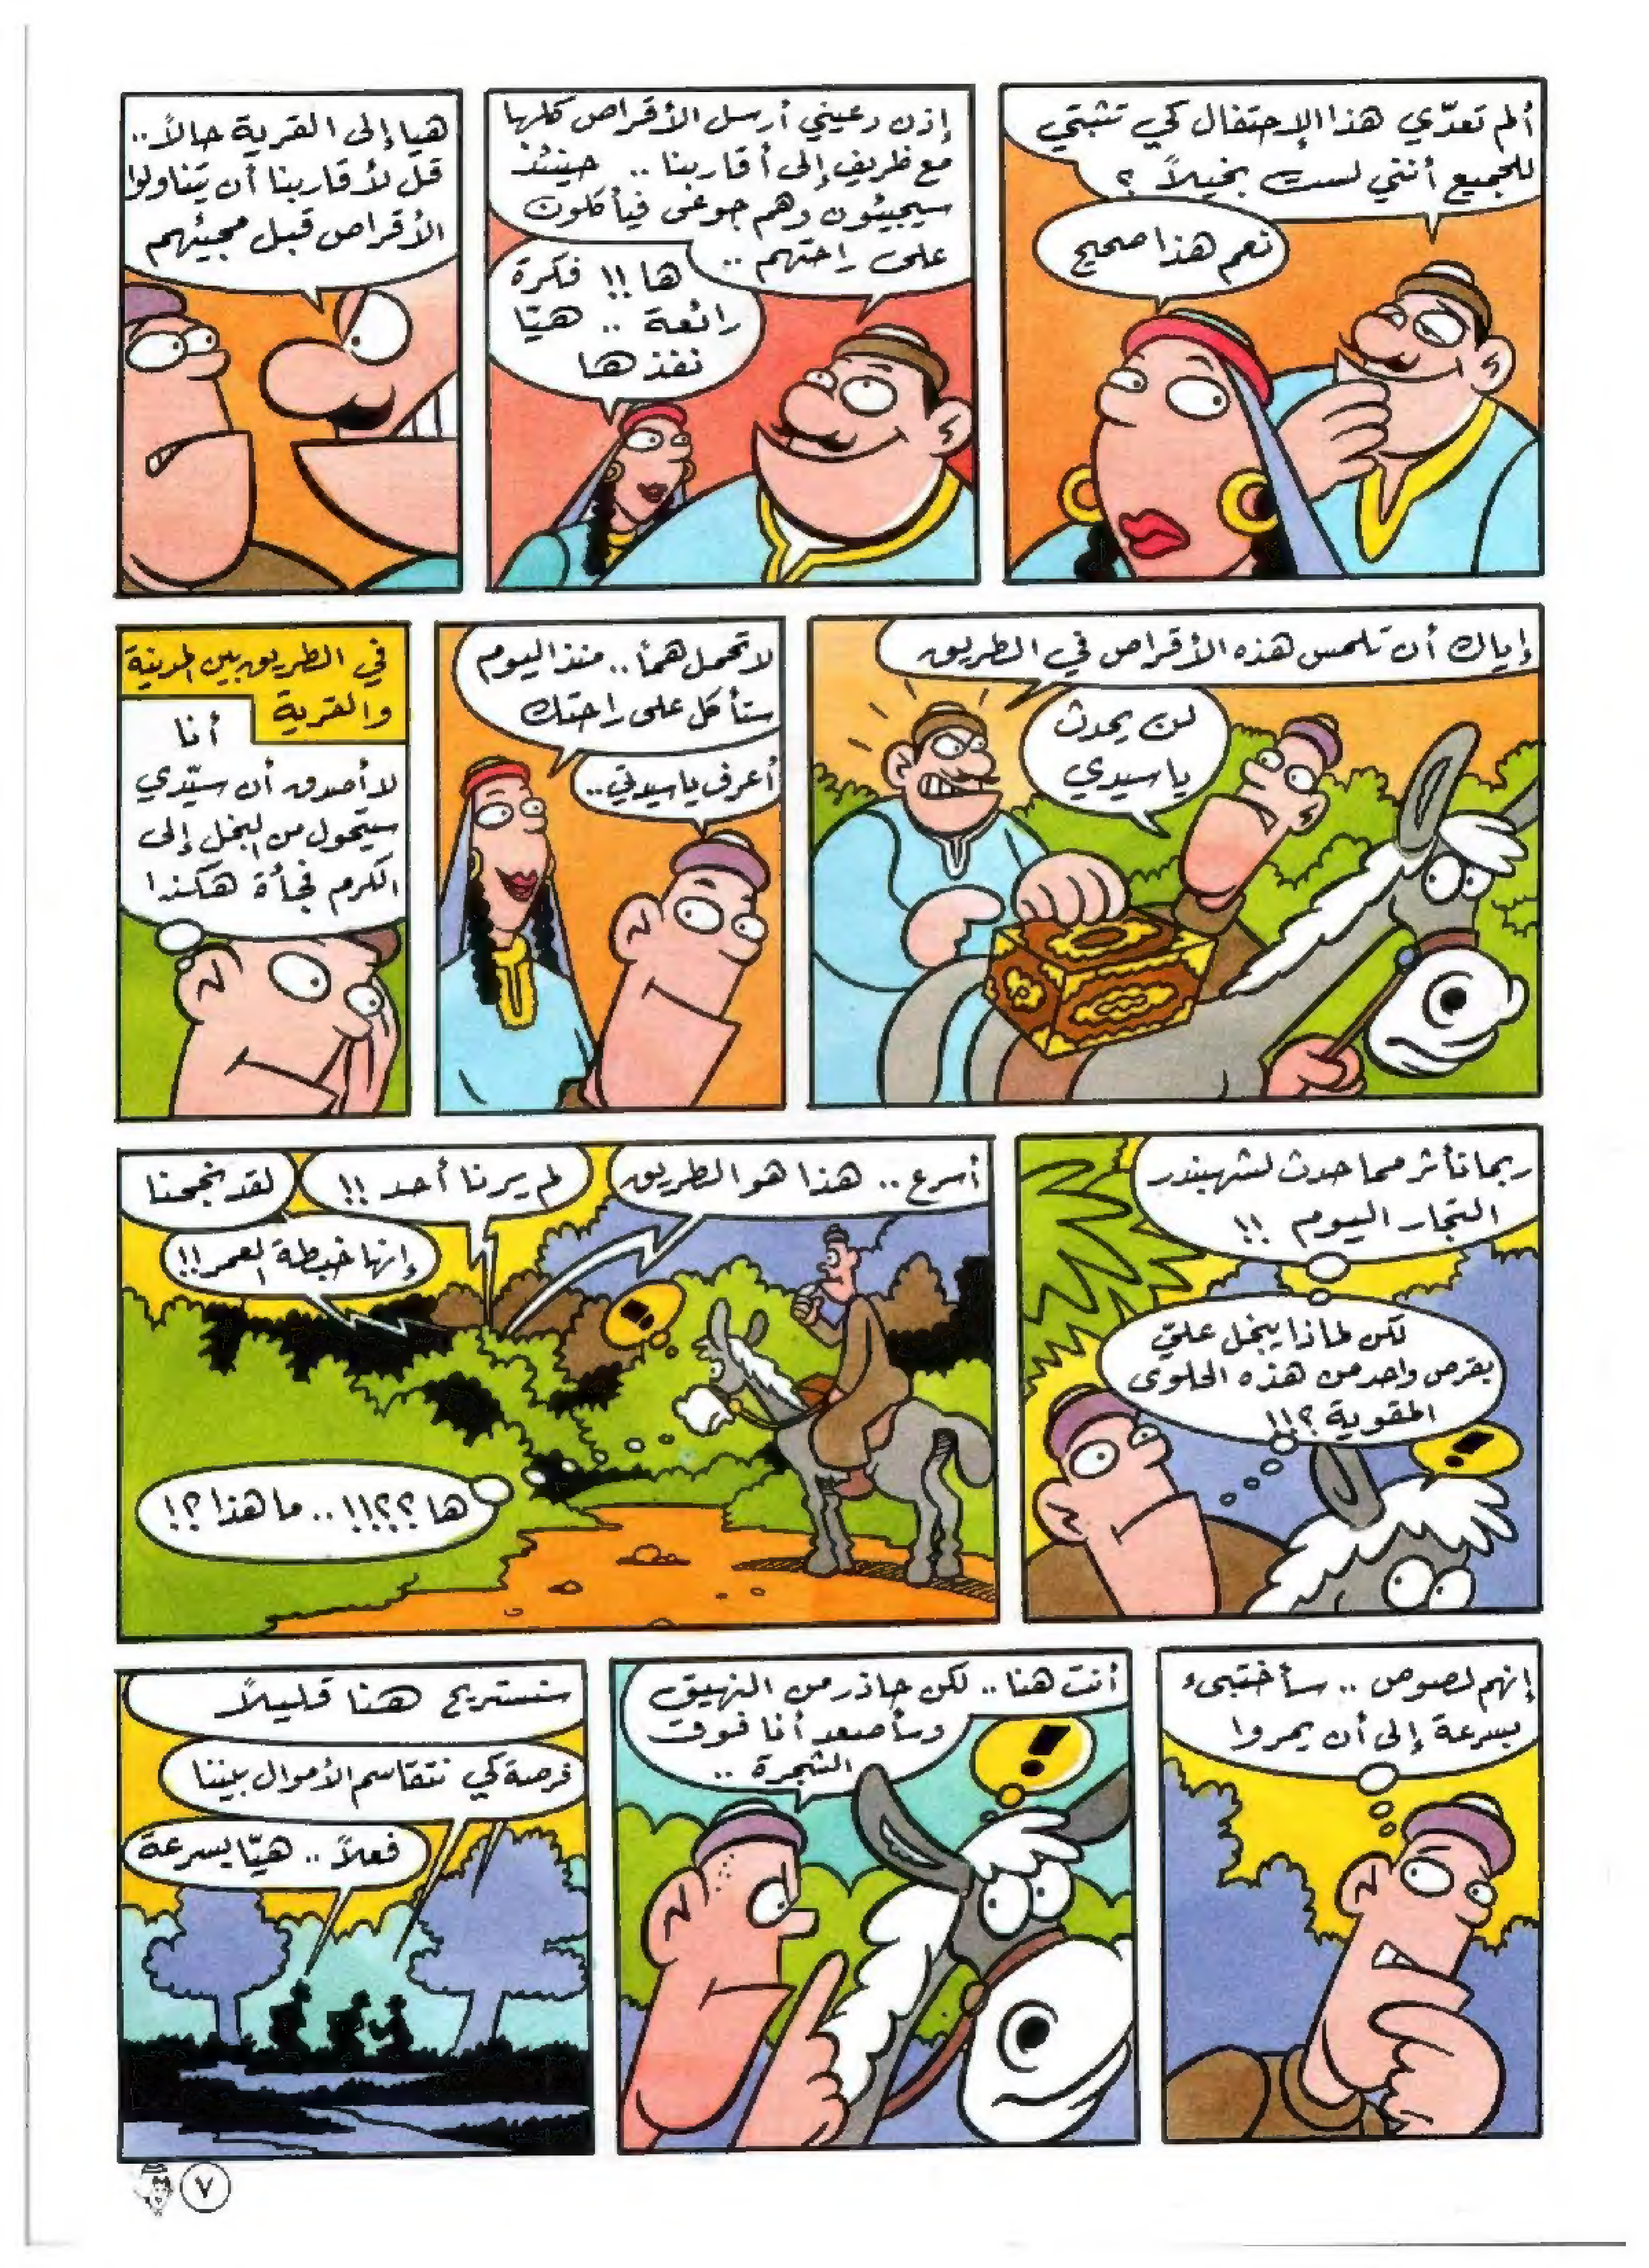 ألم تعدّي هذا الإحتفال كي تثبتي
للجميع أنني لست بخيلاً ؟
نعم هذا صحيح
إذن دعيني أرسل الأقراص كلها
مع ظريف إلى أقاربنا .. حينئذ
سيجيئون وهم جوعى فيأكلون
على راحتهم ..
ها !! فكرة
رائعة .. هيّا
نفذها
هيا إلى القرية حالاً..
قل لأقاربنا أن يتناولوا
الأقراص قبل مجيئهم
إياك أن تلمس هذه الأقراص في الطريق
لن يحدث
يا سيدي
لا تحمل هماً .. منذ اليوم
ستأكل على راحتك
أعرف يا سيدتي..
في الطريق بين المدينة
والقرية
أنا
لا أصدق أن سيّدي
سيتحول من البخل إلى
الكرم فجأة هكذا
ربما تأثر مما حدث لشهبندر
التجار اليوم !!
لكن لماذا يبخل عليّ
بقرص واحد من هذه الحلوى
المقوية ؟!!
!
أسرع .. هذا هو الطريق
لم يرنا أحد !!
لقد نجحنا
إنها خبطة العمر!!
!
ها ؟؟!!! .. ما هذا ؟!
إنهم لصوص .. سأختبىء
بسرعة إلى أن يمروا
أنت هنا .. لكن حاذر من النهيق
وسأصعد أنا فوق
الشجرة ..
!
سنستريح هنا قليلاً
فرصة كي نتقاسم الأموال بيننا
فعلاً .. هيّا بسرعة
٧